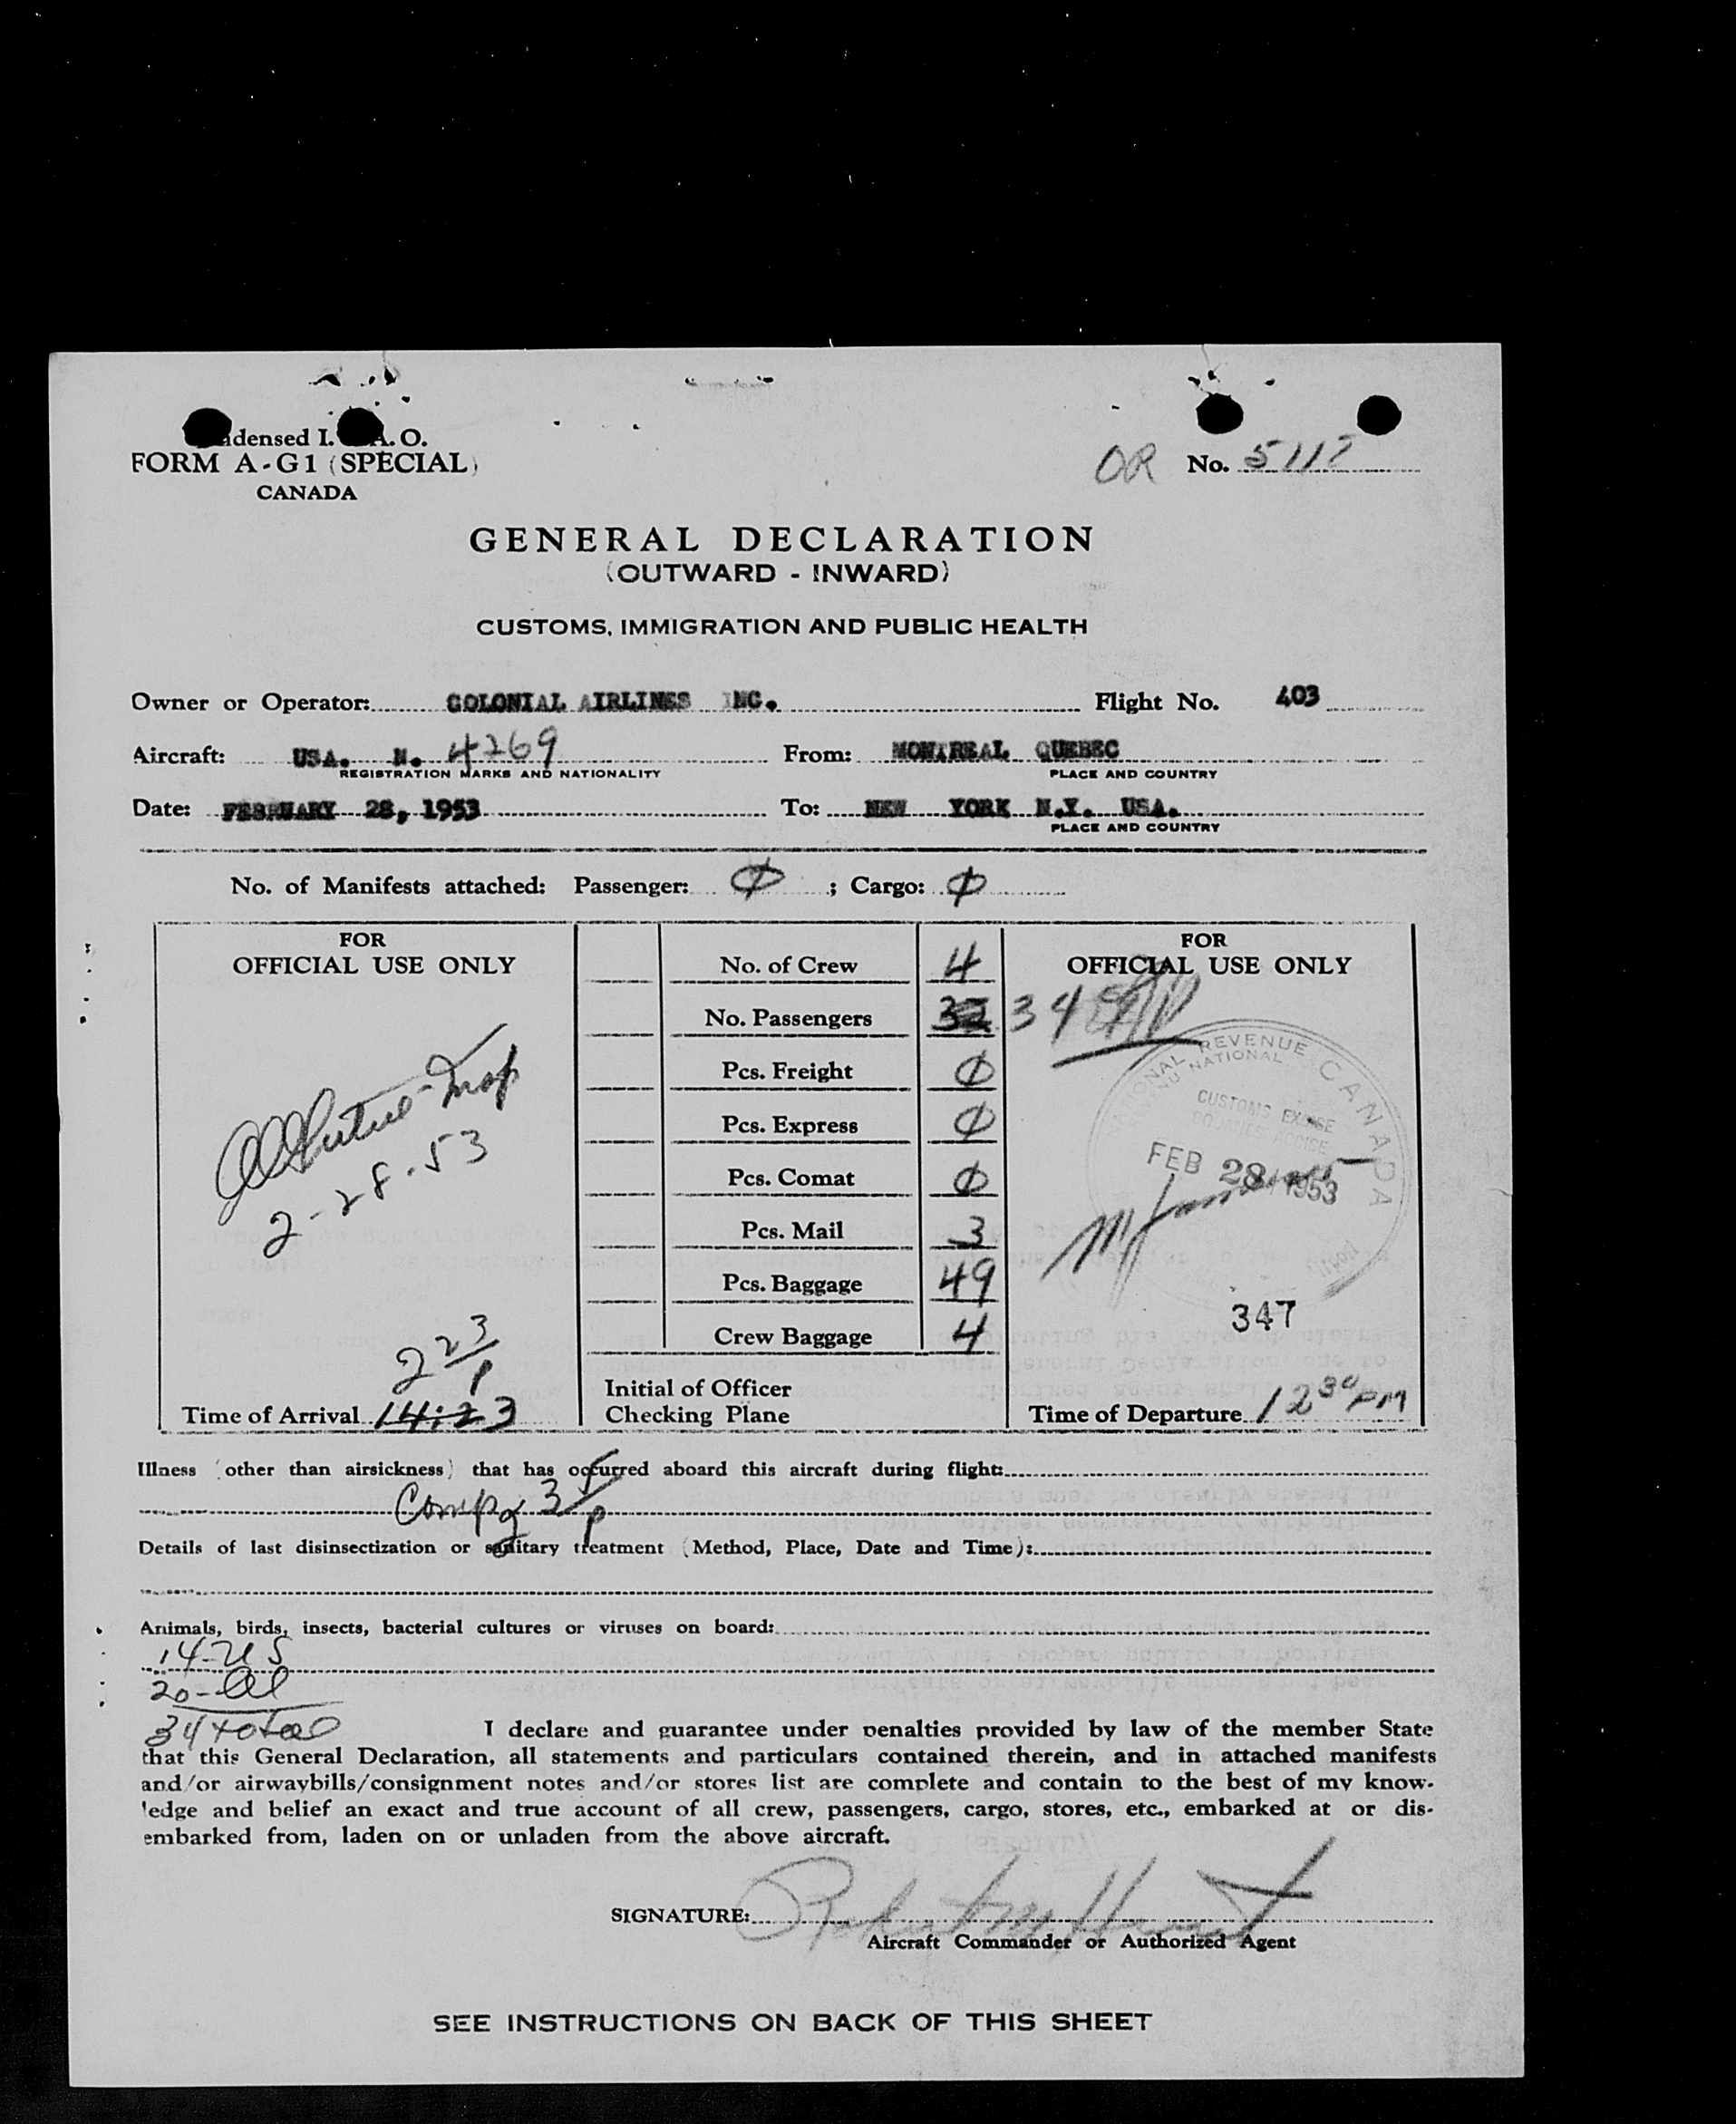 densed I. A. O.
FORM A-G1 (SPECIAL)
CANADA
OR No. 511
GENERAL DECLARATION
(OUTWARD - INWARD)
CUSTOMS, IMMIGRATION AND PUBLIC HEALTH
Owner or Operator: COLONIAL AIRLINES INC. Flight No. 403
Aircraft: USA. N. 4269 From: MONTREAL QUEBEC
REGISTRATION MARKS AND NATIONALITY PLACE AND COUNTRY
Date: FEBRUARY 28, 1953 To: NEW YORK N.Y. USA.
PLACE AND COUNTRY
No. of Manifests attached: Passenger: ∅ ; Cargo: ∅
FOR
OFFICIAL USE ONLY
2-28-53
2 23/P
Time of Arrival 14:23
No. of Crew 4
No. Passengers 34
Pcs. Freight ∅
Pcs. Express ∅
Pcs. Comat ∅
Pcs. Mail 3
Pcs. Baggage 49
Crew Baggage 4
Initial of Officer
Checking Plane
FOR
OFFICIAL USE ONLY
NATIONAL REVENUE CANADA
NATIONAL
CUSTOMS EXCISE
FEB 28 1953
347
Time of Departure 12 30 PM
Illness (other than airsickness) that has occurred aboard this aircraft during flight:
Comp 3 /p
Details of last disinsectization or sanitary treatment (Method, Place, Date and Time):
Animals, birds, insects, bacterial cultures or viruses on board:
14-US
20-al
34 total
I declare and guarantee under penalties provided by law of the member State
that this General Declaration, all statements and particulars contained therein, and in attached manifests
and/or airwaybills/consignment notes and/or stores list are complete and contain to the best of my know-
ledge and belief an exact and true account of all crew, passengers, cargo, stores, etc., embarked at or dis-
embarked from, laden on or unladen from the above aircraft.
SIGNATURE: Robert M Hunt
Aircraft Commander or Authorized Agent
SEE INSTRUCTIONS ON BACK OF THIS SHEET